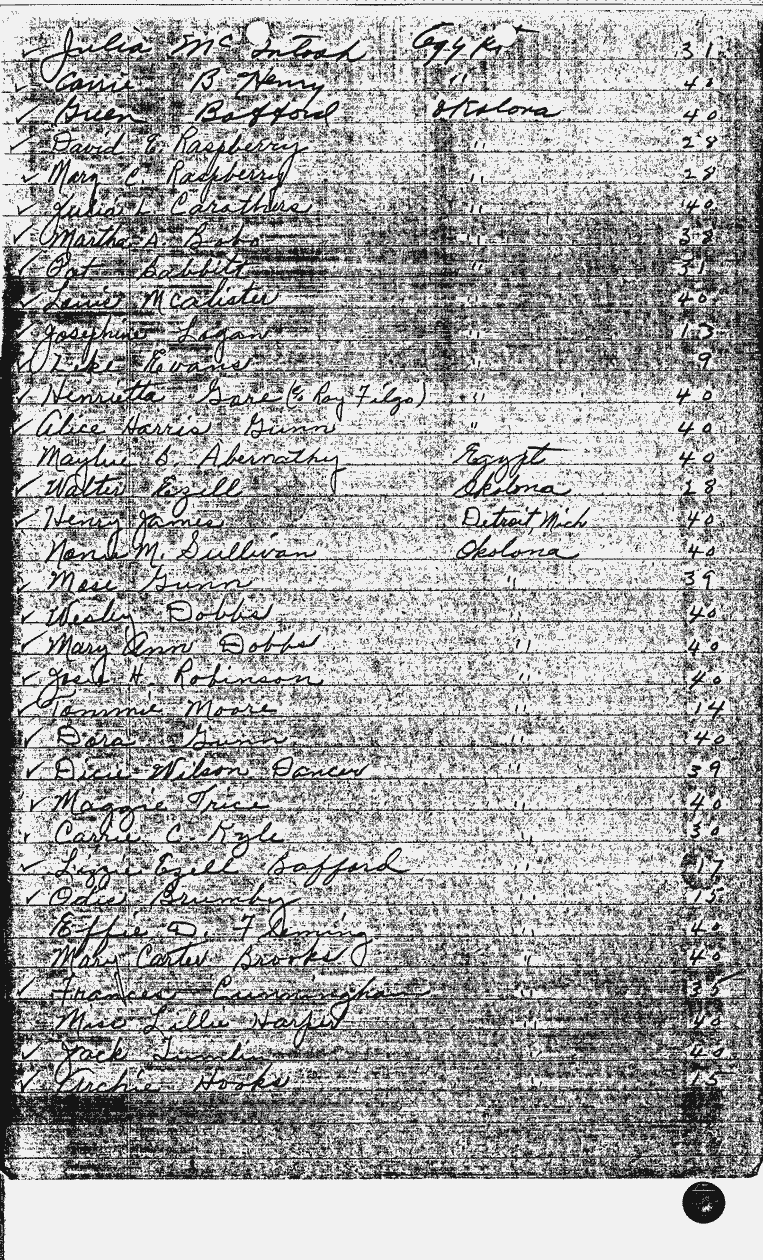 ✓ Julia Mc Intosh Egypt 31
✓ Carrie B Henry " 40
✓ Green Bafford Okolona 40
✓ David E. Raspberry " 28
✓ Mary C. Raspberry " 28
✓ Julia L. Carothers " 40
✓ Martha A. Bobo " 38
✓ Pat Babbitt " 31
✓ Louis McAlister " 40
✓ Josephine Logan " 13
✓ Luke Evans " 9
✓ Henrietta Gore (c/o Roy Filgo) " 40
✓ Alice Harris Gunn " 40
Maylue B. Abernathy Egypt 40
✓ Walter Ezell Okolona 28
✓ Henry James Detroit, Mich 40
Nonie M. Sullivan Okolona 40
✓ Mose Gunn " 39
✓ Wesley Dobbs " 40
✓ Mary Ann Dobbs " 40
✓ Josie H. Robinson " 40
✓ Tommie Moore " 14
✓ Dora Gunn " 40
✓ Dicie Wilson Dancer " 39
✓ Maggie Trice " 40
Carrie C. Kyle " 30
✓ Lizzie Ezell Bafford " 17
✓ Odis Brumby " 15
Effie D. Fleming " 40
Mary Carter Brooks " 40
✓ Frances Cunningham " 35
Miss Lillie Harper " 40
✓ Jack " 40
✓ Archie Hooks " 15